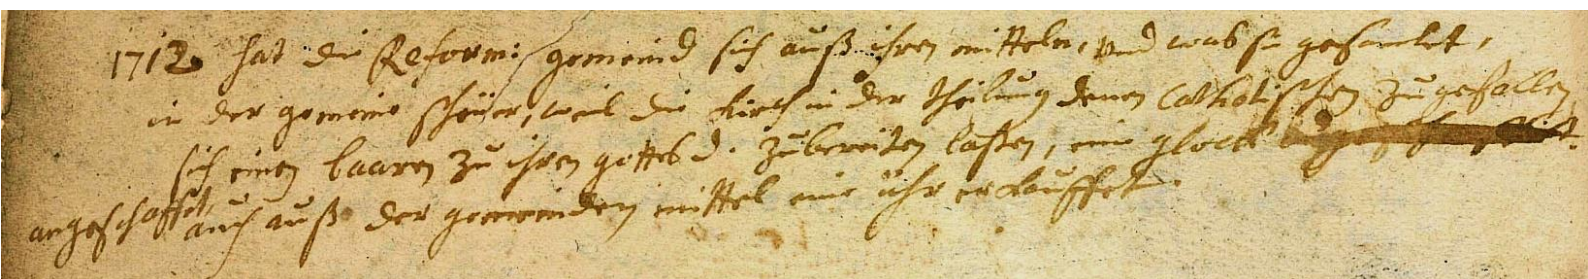 1712 hat die Reform: gemeind sich auß ihren mitteln, und was sie gesamlet,
in der gemeine scheüer, weil die kirch in der theilung denen Catholischen zugefallen
sich einen baaren zu ihren gottesd. zubereiten laßen, eine glock
angeschaffet, auch auß der gemeinden mittel eine uhr erkauffet.